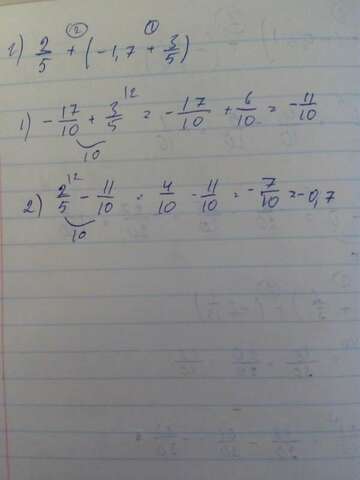 ② ①
г) 2/5 + (-1,7 + 3/5)
1) -17/10 + 3/5 |2 = -17/10 + 6/10 = -11/10
10
2) 2/5 |2 - 11/10 = 4/10 - 11/10 = -7/10 = -0,7
10